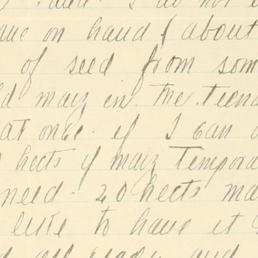 I do not
on hand & about
of seed from som
maiz in the tiend
at once. if I can
hects of maiz Tempora
need. 20 hects ma
like to have it
and